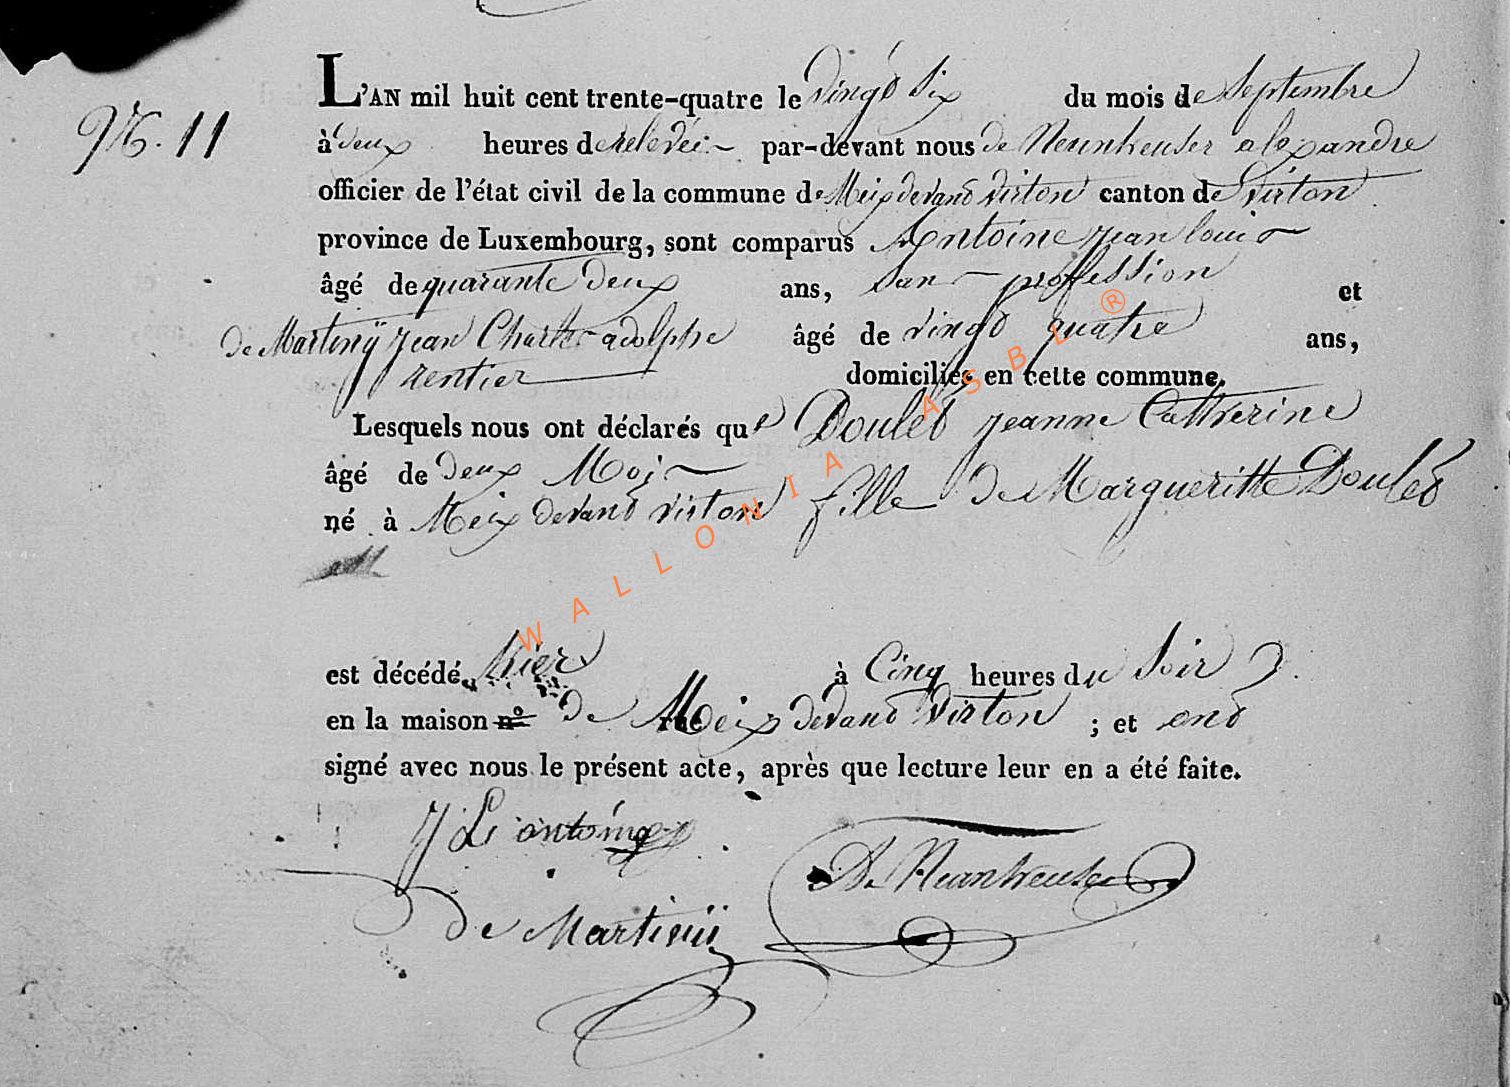 L'AN mil huit cent trente-quatre le vingt six du mois de Septembre
N. 11
à deux heures de relevéé par-devant nous de Neunheuser alexandre
officier de l'état civil de la commune de Meix devand virton canton de virton
province de Luxembourg, sont comparus Antoine jean louis
âgé de quarante deux ans, san profession et
de Martinÿ jean Charles adolphe âgé de vingt quatre ans,
rentier domiciliés en cette commune.
Lesquels nous ont déclarés que Doulet jeanne Catherine
âgé de deux Moi
né à Meix devand virton fille de Margueritte Doulet
est décédé hier à Cinq heures du soir
en la maison n° de Meix devand virton ; et ont
signé avec nous le présent acte, après que lecture leur en a été faite.
J L antoine
De Neunheuser
de Martinÿ
WALLONIA ASBL ®